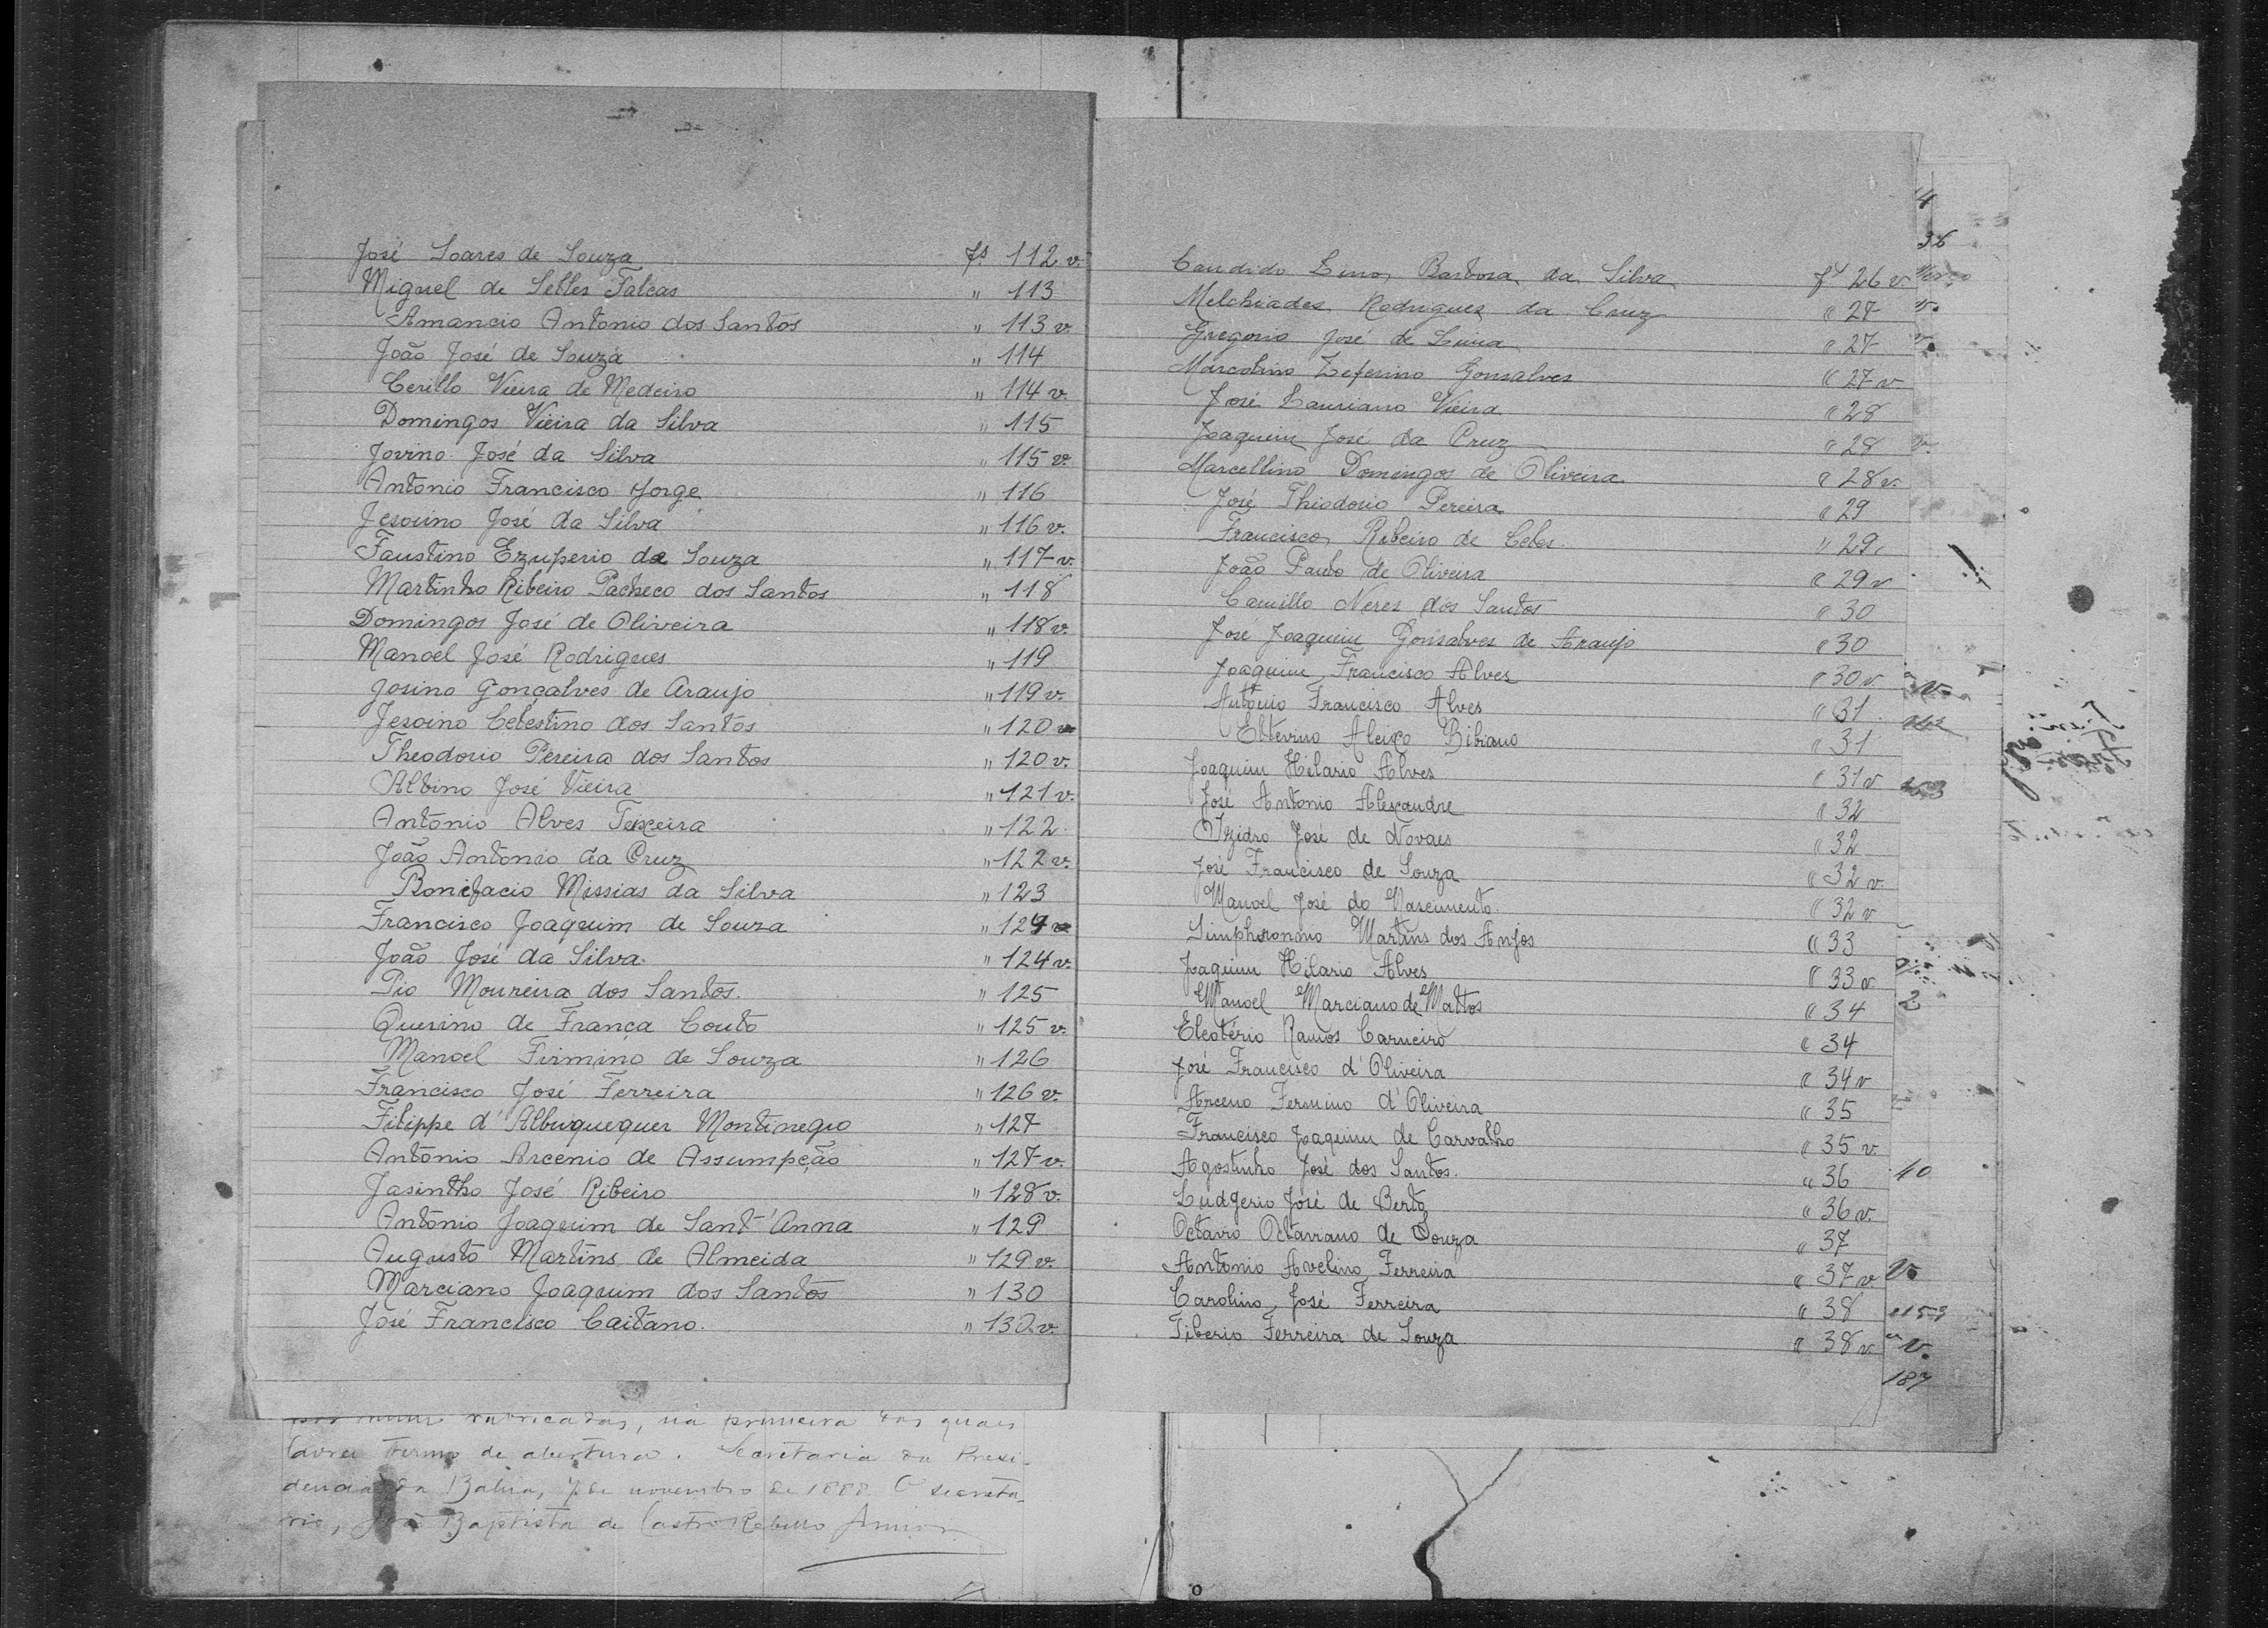 José Soares de Souza fs 112 v.
Miguel de Selles Falcas " 113
Amancio Antonio dos Santos " 113 v.
João José de Souza " 114
Cerillo Vieira de Medeiro " 114 v.
Domingos Vieira da Silva " 115
Jovino José da Silva " 115 v.
Antonio Francisco Jorge " 116
Jesoino José da Silva " 116 v.
Faustino Ezuperio de Souza " 117 v.
Martinho Ribeiro Pacheco dos Santos " 118
Domingos José de Oliveira " 118 v.
Manoel José Rodrigues " 119
Josino Gonçalves de Araujo " 119 v.
Jesoino Celestino dos Santos " 120
Theodorio Pereira dos Santos " 120 v.
Albino José Vieira " 121 v.
Antonio Alves Teixeira " 122
João Antonio da Cruz " 122 v.
Bonifacio Missias da Silva " 123
Francisco Joaquim de Souza " 124
João José da Silva " 124 v.
Pio Moureira dos Santos. " 125
Querino de França Couto " 125 v.
Manoel Firmino de Souza " 126
Francisco José Ferreira " 126 v.
Filippe d'Albuquequer Montinegro " 127
Antonio Arcenio de Assumpção " 127 v.
Jasintho José Ribeiro " 128 v.
Antonio Joaquim de Sant'Anna " 129
Augusto Martins de Almeida " 129 v.
Marciano Joaquim dos Santos " 130
José Francisco Caitano. " 130 v.
rubricadas, na primeira das quaes
lavrei termo de abertura. Secretaria da Presi-
dencia da Bahia, 7 de novembro de 1888. O secreta-
rio, João Baptista de Castro Rebello Junior
Candido Lino Barbosa da Silva fs 26 v.
Melchiades Rodrigues da Cruz " 27
Gregorio José de Lima " 27
Marcolino Zeferino Gonsalves " 27 v
José Lauriano Vieira " 28
Joaquim José da Cruz " 28
Marcellino Domingos de Oliveira " 28 v.
José Thiodorio Pereira " 29
Francisco Ribeiro de Celes. " 29
João Paulo de Oliveira " 29 v
Camillo Neres dos Santos " 30
José Joaquim Gonsalves de Araujo " 30
Joaquim Francisco Alves " 30 v.
Antonio Francisco Alves " 31
Aleixo Bibiano " 31
Joaquim Hilario Alves " 31 v
José Antonio Alexandre " 32
Izidro José de Novaes " 32
José Francisco de Souza " 32 v.
Manoel José do Nascimento. " 32 v
Simphoronio Martins dos Anjos " 33
Joaquim Hilario Alves " 33 v
Manoel Marciano de Mattos " 34
Eleotério Ramos Carneiro " 34
José Francisco d'Oliveira " 34 v
Arceno Fermino d'Oliveira " 35
Francisco Joaquim de Carvalho " 35 v.
Agostinho José dos Santos. " 36
Ludgerio José de Berto " 36 v.
Octavio Octaviano de Souza " 37
Antonio Avelino Ferreira " 37 v
Carolino José Ferreira " 38
Tiberio Ferreira de Souza " 38 v
4
36
v.
v.
v.
2
40
v.
153
v.
187